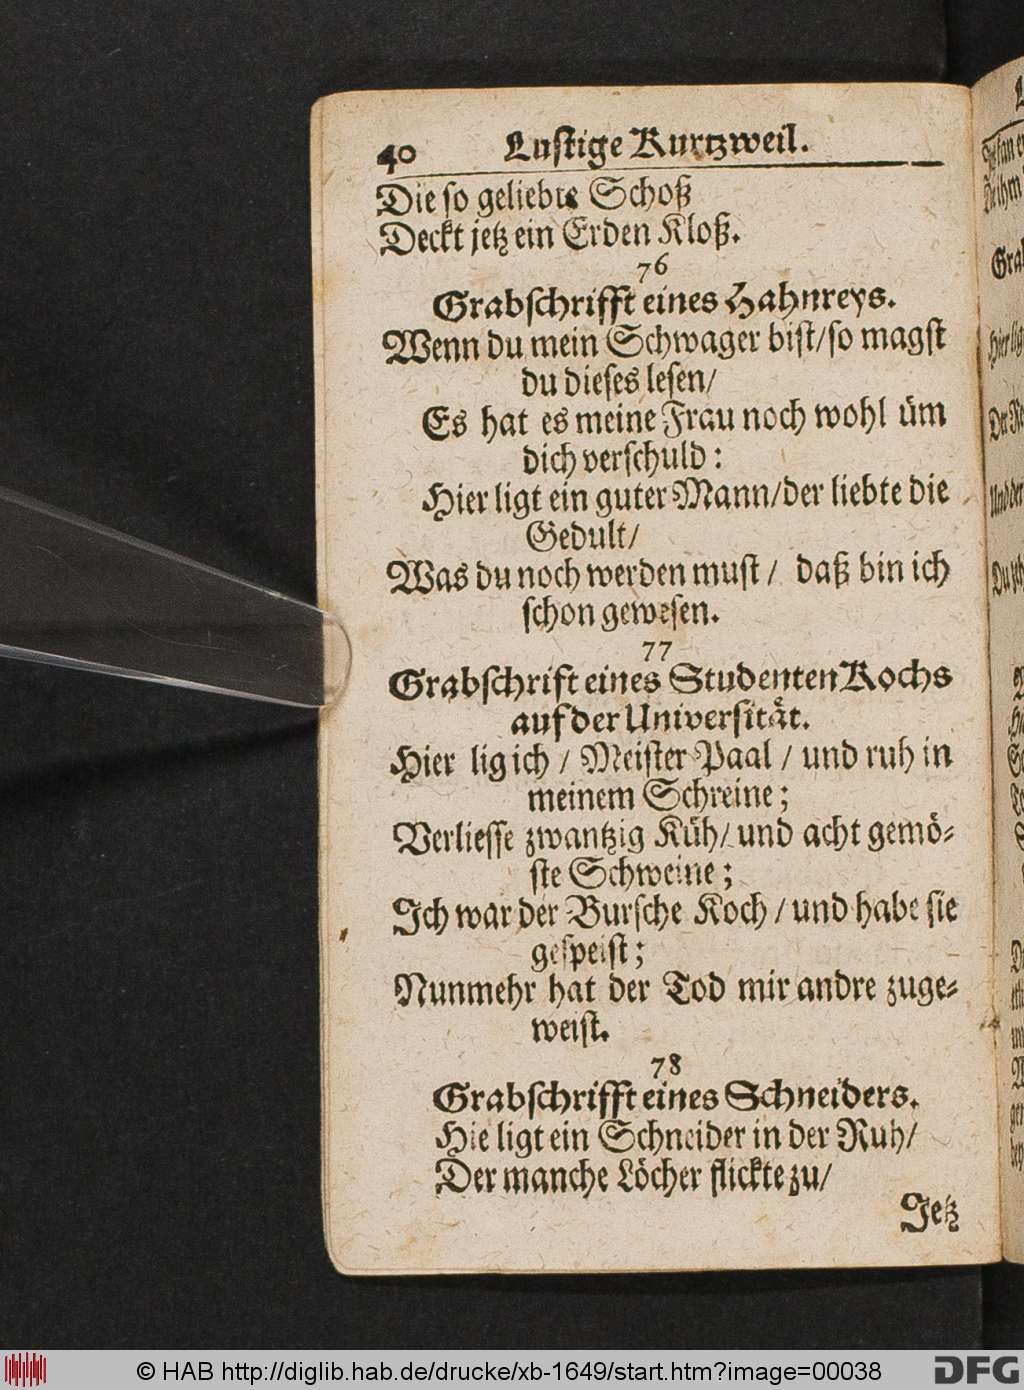 40 Lustige Kurtzweil.
Die so geliebte Schoß
Deckt jetz ein Erden Kloß.
76
Grabschrifft eines Hahnreys.
Wenn du mein Schwager bist/so magst
du dieses lesen/
Es hat es meine Frau noch wohl üm
dich verschuld:
Hier ligt ein guter Mann/der liebte die
Gedult/
Was du noch werden must / daß bin ich
schon gewesen.
77
Grabschrift eines Studenten Kochs
auf der Universität.
Hier lig ich / Meister Paal / und ruh in
meinem Schreine;
Verliesse zwantzig Küh/ und acht gemö-
ste Schweine;
Ich war der Bursche Koch / und habe sie
gespeist;
Nunmehr hat der Tod mir andre zuge-
weist.
78
Grabschrifft eines Schneiders.
Hie ligt ein Schneider in der Ruh/
Der manche Löcher flickte zu/
Jetz
© HAB http://diglib.hab.de/drucke/xb-1649/start.htm?image=00038
DFG